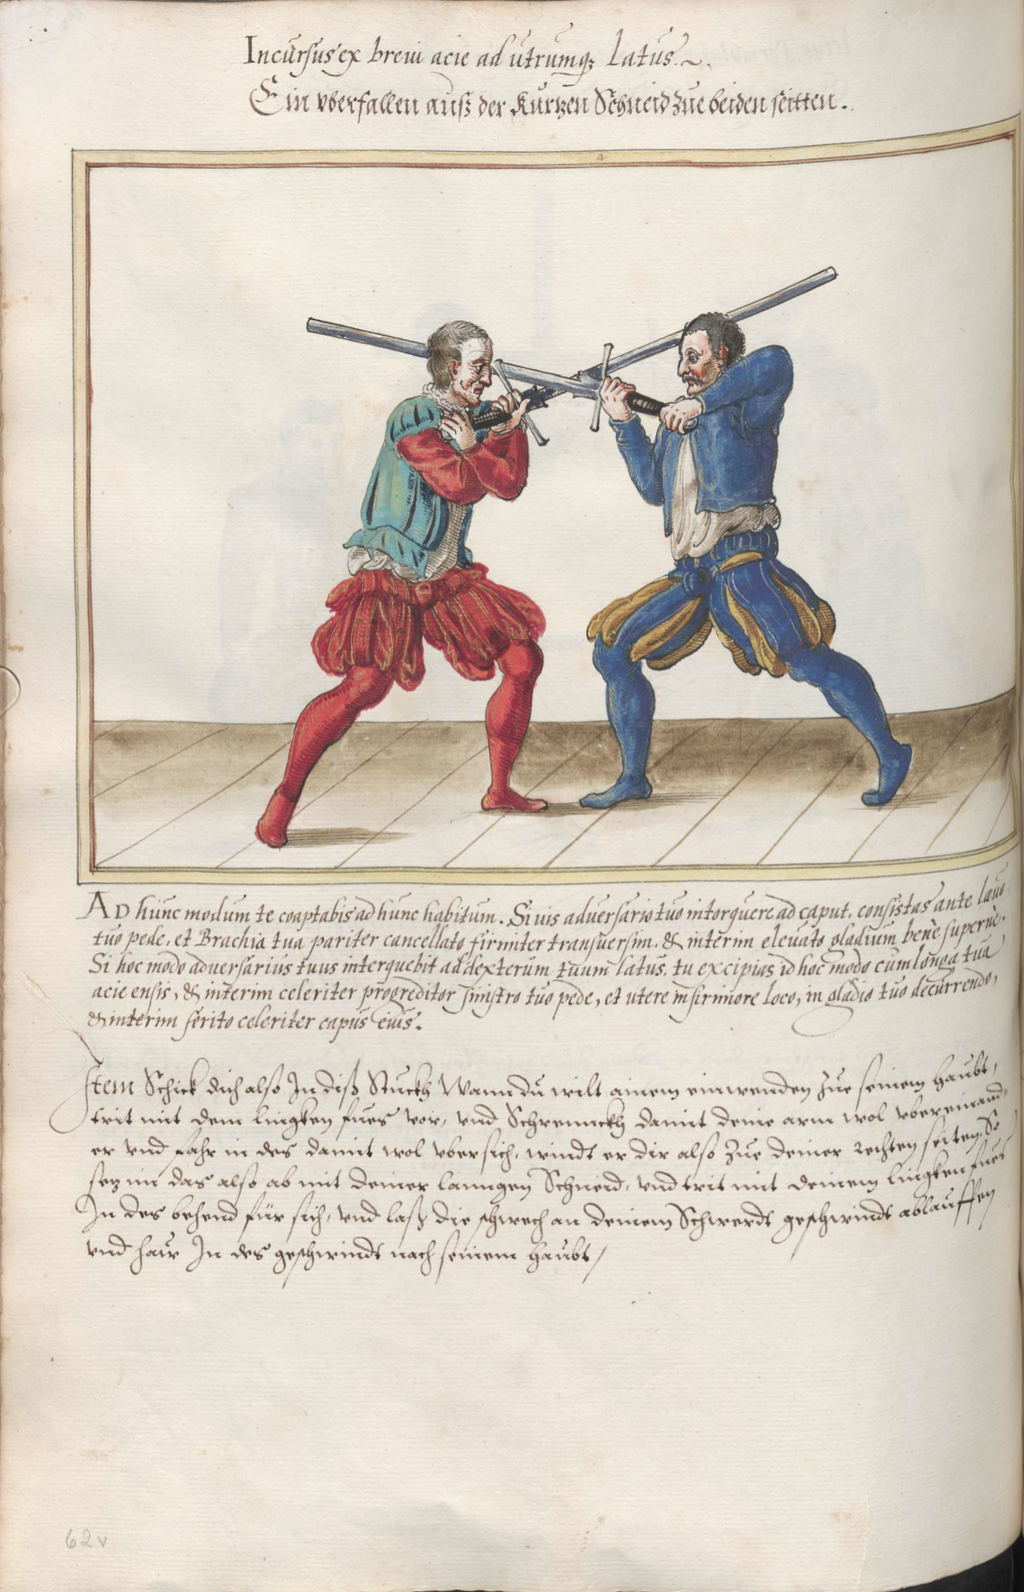 Incursus ex breui acie ad utrumq; latus ~.
Ein vberfallen auß der Kurtzen Schneid zue beiden seitten.
AD hunc modum te coaptabis ad hunc habitum. Si uis aduersario tuo intorquere ad caput, consistas ante laeuo
tuo pede, et Brachia tua pariter cancellato firmiter transuersim. & interim eleuato gladium bene superne.
Si hoc modo aduersarius tuus interquebit ad dexterum tuum latus, tu excipias id hoc modo cum longa tua
acie ensis, & interim celeriter progreditor sinistro tuo pede, et utere infirmiore loco, in gladio tuo decurrendo,
& interim ferito celeriter capus eius.
Item Schick dich also In diß Stuckh Wann du wilt ainem einwenden zue seinem haubt,
trit mit dem lingken fues vor, vnd Schrennckh damit deine arm wol vbereinand-
er vnd fahr in des damit wol vbersich, windt er dir also zue deiner rechten seiten, So
setz im das also ab mit deiner lanngen Schneid, vnd trit mit deinem lingken fues
In des behend für sich, vnd laß die schwech an deinem Schwerdt geschwindt ablauffen
vnd haw In des geschwindt nach seinem haubt,
62v